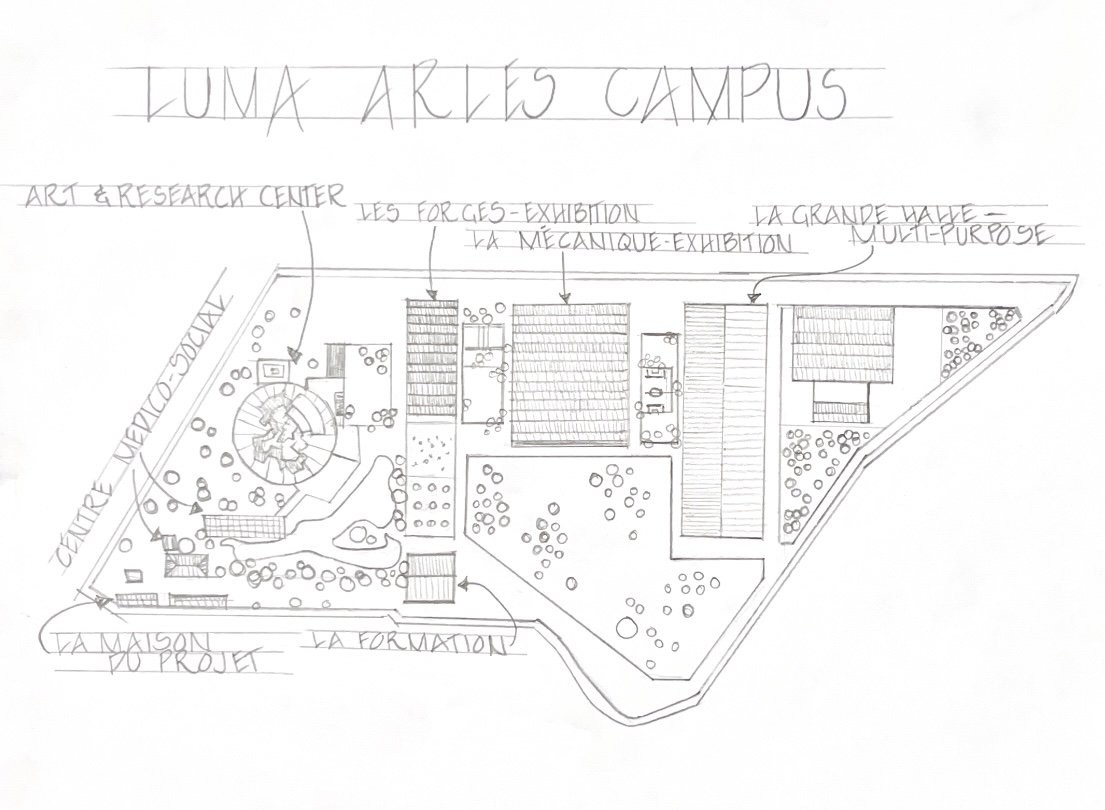 LUMA ARLES CAMPUS
ART & RESEARCH CENTER
LES FORGES-EXHIBITION
LA MÉCANIQUE-EXHIBITION
LA GRANDE HALLE-
MULTI-PURPOSE
CENTRE MEDICO-SOCIAL
LA MAISON
DU PROJET
LA FORMATION